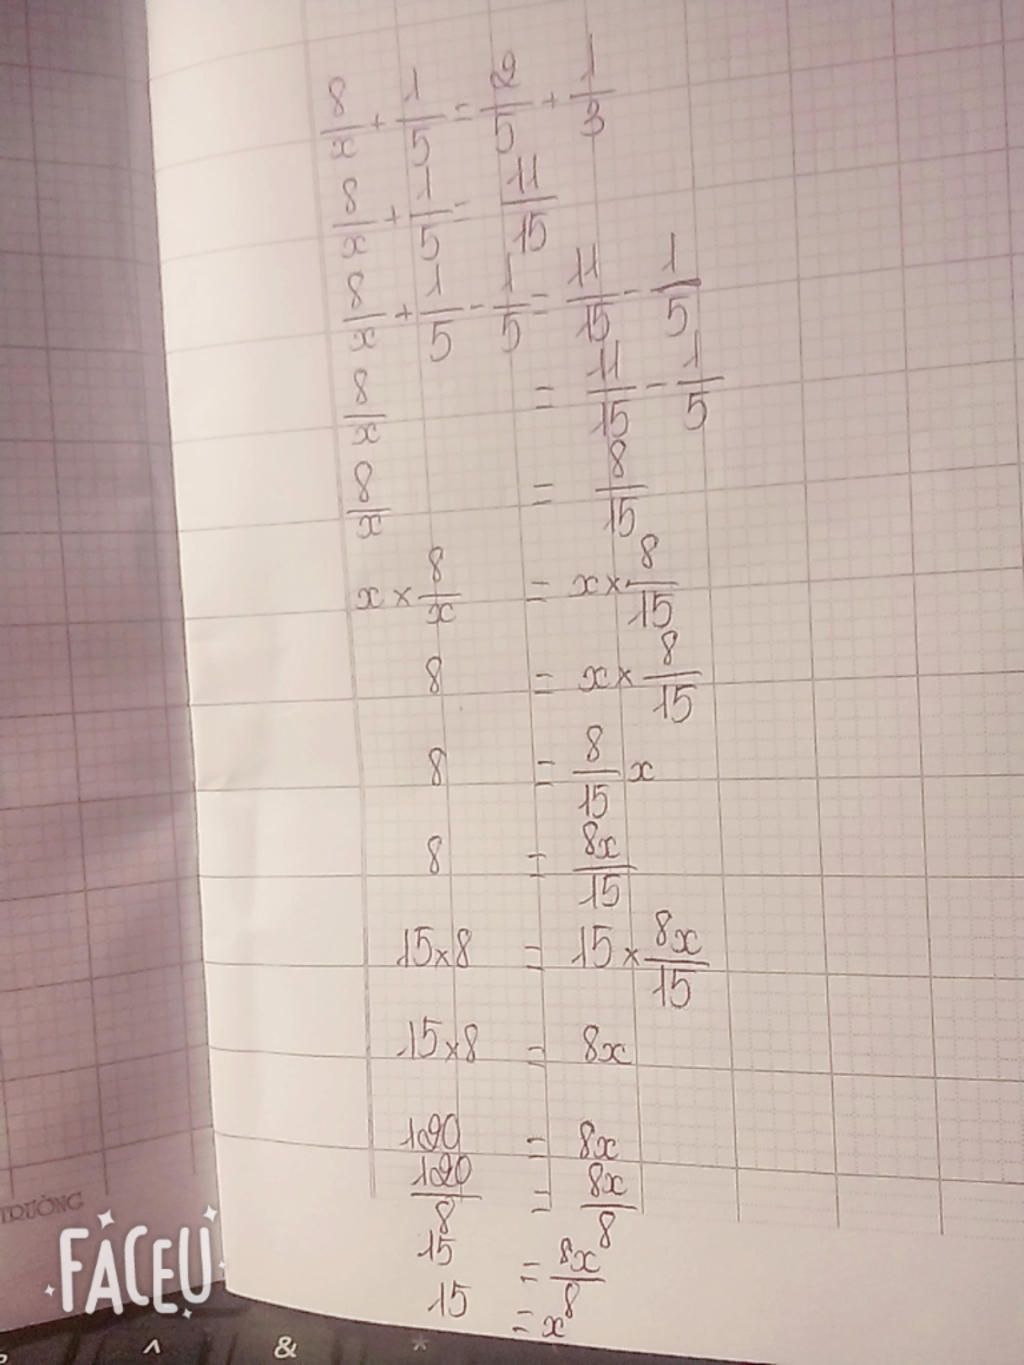 8/x + 1/5 = 2/5 + 1/3
8/x + 1/5 = 11/15
8/x + 1/5 - 1/5 = 11/15 - 1/5
8/x = 11/15 - 1/5
8/x = 8/15
x × 8/x = x × 8/15
8 = x × 8/15
8 = 8/15 x
8 = 8x/15
15 × 8 = 15 × 8x/15
15 × 8 = 8x
120 = 8x
120/8 = 8x/8
15 = 8x/8
15 = x
TRƯỜNG
FACEU
^ & *